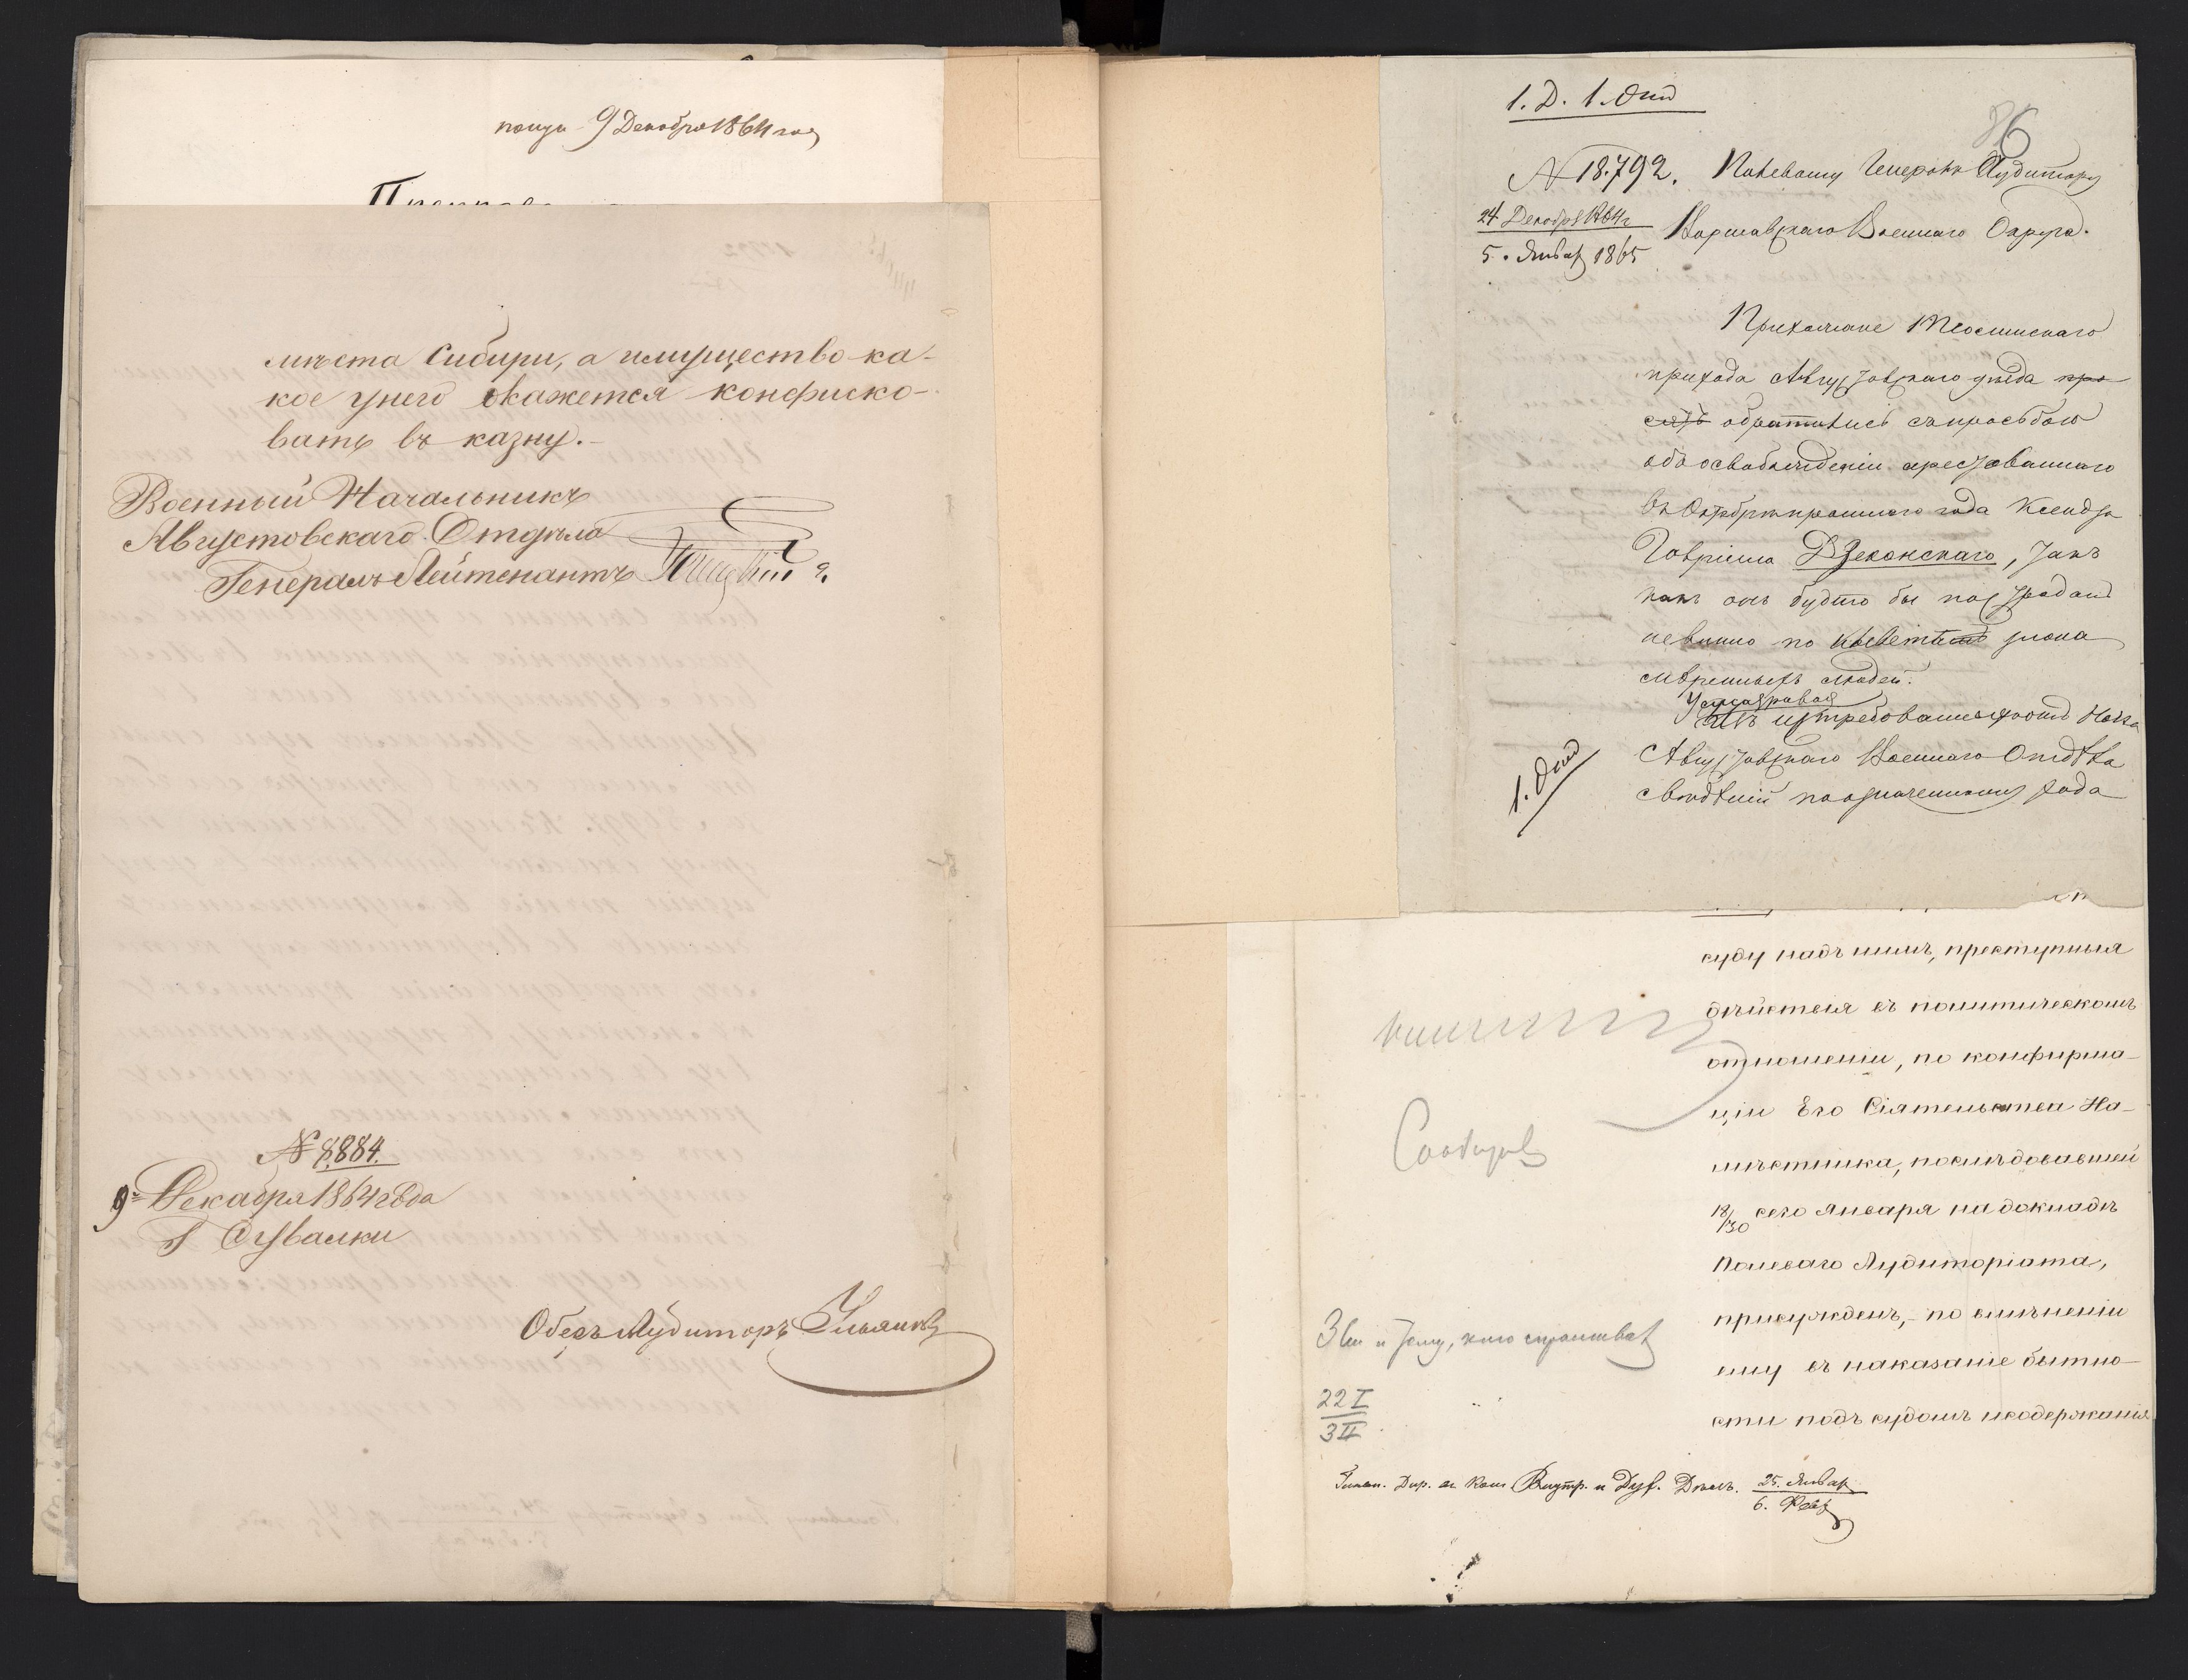 9 Декабря 1864 года
мѣста Сибири, а имущество ка-
кое у него окажется конфиско-
вать въ казну.-
Военный Начальникъ
Августовскаго Отдѣла
Генералъ Лейтенантъ
№ 8884.
9 Декабря 1864 года
Г Сувалки
Оберъ Аудиторъ Ульяновъ
1. Д. 1. Отд
86
№ 18.792. Полевому Генералъ Аудитору
24 Декабря 1864 г
Варшавскаго Военнаго Округа.
5. Январ 1865
Прихожане
прихода Августовскаго уѣзда про-
сятъ обратились съ просьбою
объ освобожденіи арестованнаго
въ Октябрѣ прошлаго года Ксендза
Гавріила Дзеконскаго, такъ
какъ онъ будто бы пострадалъ
невинно по клеветѣ злона
мѣренныхъ людей.
Усматривая
изъ истребованныхъ отъ Нач
1. Отд
Августовскаго Военнаго Отдѣла
свѣдѣній по означенному хода
суду надъ нимъ, преступныя
дѣйствія въ политическомъ
отношеніи, по конфирма-
ціи Его Сіятельства На-
мѣстника, послѣдовавшей
18/30 сего Января на докладѣ
Полеваго Аудиторіата,
присужденъ,- по вмѣненіи
ему въ наказаніе бытно-
сти подъ судомъ и содержанія
Сообщить
и тому, кто спрашивал
22 I
3 II
Дир. Ком Внутр. и Дух. Дѣлъ. 25. Январ
6. Фев